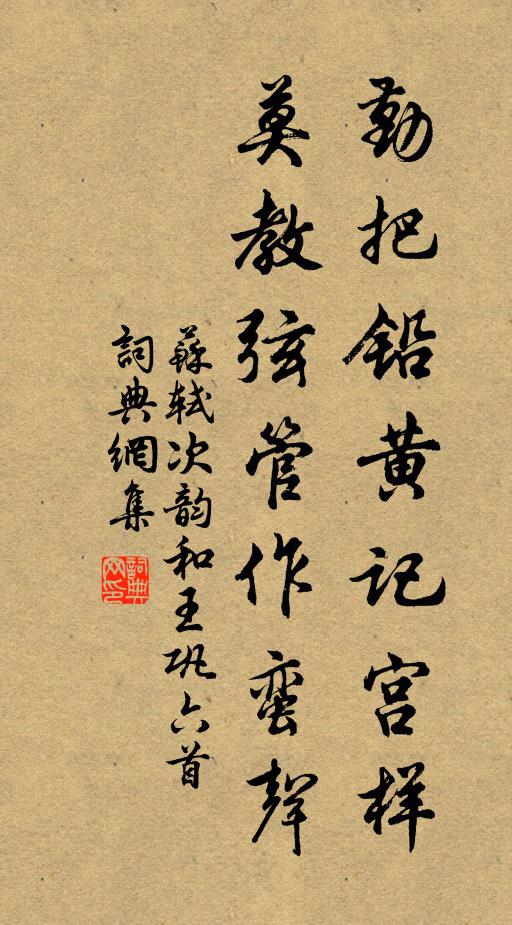 勤把铅黄记宫样
莫教弦管作蛮聲
蘇轼次韵和王巩六首
詞典網集
詞典网印